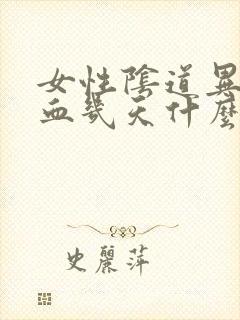 女性陰道異
血幾天什麼
史麗萍